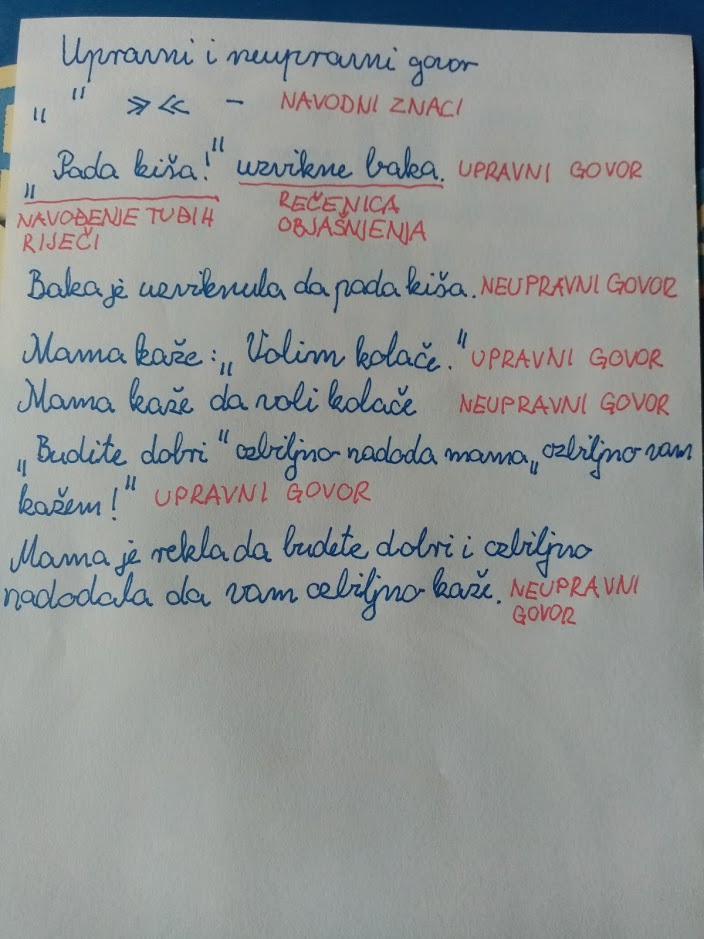 Upravni i neupravni govor
„ " »« - NAVODNI ZNACI
„Pada kiša!" uzvikne baka. UPRAVNI GOVOR
NAVOĐENJE TUĐIH REČENICA
RIJEČI OBJAŠNJENJA
Baka je uzviknula da pada kiša. NEUPRAVNI GOVOR
Mama kaže: „Volim kolače." UPRAVNI GOVOR
Mama kaže da voli kolače NEUPRAVNI GOVOR
„Budite dobri" ozbiljno nadoda mama „ozbiljno vam
kažem!" UPRAVNI GOVOR
Mama je rekla da budete dobri i ozbiljno
nadodala da vam ozbiljno kaže. NEUPRAVNI
GOVOR